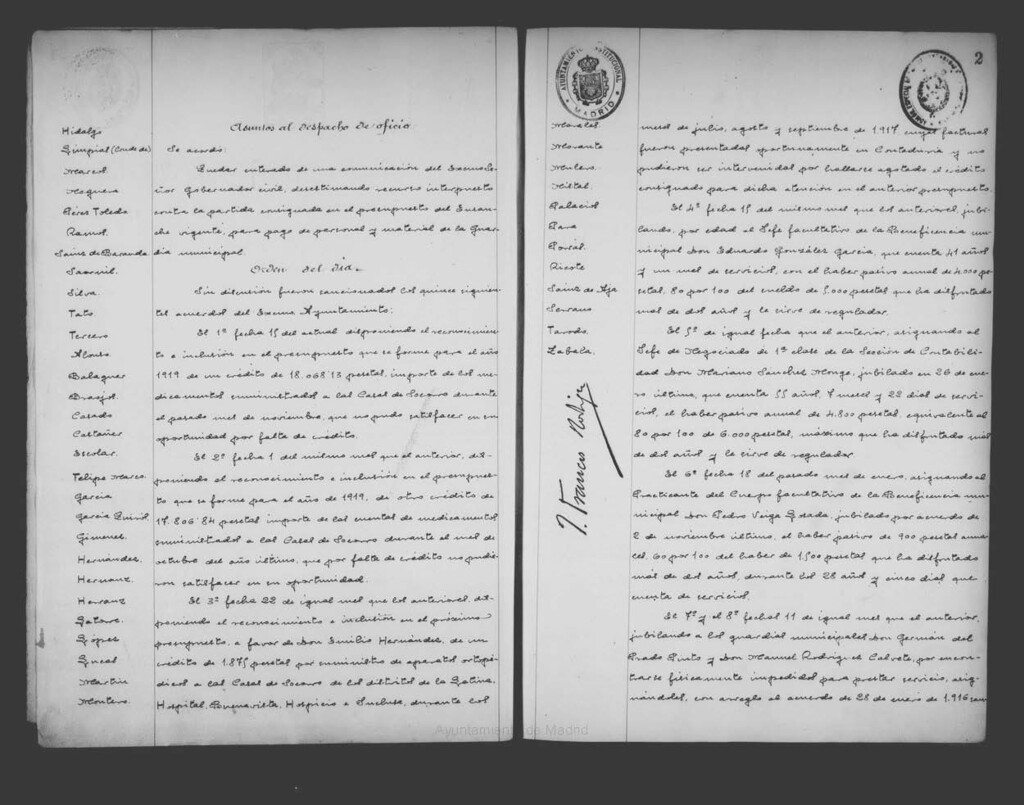 Hidalgo
Limpias (Conde de)
Marcos
Noguera
Pérez Toledo
Ramos
Sainz de Baranda
Saornil
Silva
Tato
Tercero
Alonso
Balaguer
Casado
Castañer
Escolar
Felipe Marco
García
García Quirós
Gimenez
Hernández
Herranz
Herranz
Latorre
López
Martín
Montero
Asuntos al despacho de oficio
Se acordó:
Quedar enterado de una comunicación del Excmo Señor
Gobernador civil, desestimando recurso interpuesto
contra la partida consignada en el presupuesto del Ensanche
vigente, para pago de personal y material de la Guardia
municipal.
Orden del día
Sin discusión fueron sancionados los quince siguientes
acuerdos del Excmo Ayuntamiento:
El 1º fecha 15 del actual disponiendo el reconocimiento
e inclusión en el presupuesto que se forme para el año
1919 de un crédito de 18.068'13 pesetas, importe de los medicamentos
suministrados a las Casas de Socorro durante
el pasado mes de noviembre, que no pudo satisfacer en su
oportunidad por falta de crédito.
El 2º fecha 1 del mismo mes que el anterior, disponiendo
el reconocimiento e inclusión en el presupuesto
que se forme para el año de 1919, de otro crédito de
17.806'84 pesetas importe de las cuentas de medicamentos
suministrados a las Casas de Socorro durante el mes de
octubre del año último, que por falta de crédito no pudieron
satisfacer en su oportunidad.
El 3º fecha 22 de igual mes que los anteriores, disponiendo
el reconocimiento e inclusión en el próximo
presupuesto, a favor de Don Emilio Hernández, de un
crédito de 1.875 pesetas por suministro de aparatos ortopédicos
a las Casas de Socorro de los distritos de la Latina,
Hospital, Buenavista, Hospicio e Inclusa, durante los
AYUNTAMIENTO CONSTITUCIONAL
MADRID
2
Morales
Morante
Mulero
Palacios
Para
Portal
Ricote
Sainz de Aja
Serrano
Tarodo
Zabala
meses de julio, agosto y septiembre de 1917 cuyas facturas
fueron presentadas oportunamente en Contaduría y no
pudieron ser intervenidas por hallarse agotado el crédito
consignado para dicha atención en el anterior presupuesto.
El 4º fecha 15 del mismo mes que los anteriores, jubilando,
por edad al Jefe facultativo de la Beneficencia municipal
Don Eduardo González García, que cuenta 41 años
y un mes de servicios, con el haber pasivo anual de 4.000 pesetas,
80 por 100 del sueldo de 5.000 pesetas que ha disfrutado
más de dos años y le sirve de regulador.
El 5º de igual fecha que el anterior, asignando al
Jefe de Negociado de 1ª clase de la Sección de Contabilidad
Don Mariano Sánchez Monge, jubilado en 26 de enero
último, que cuenta 55 años, 7 meses y 22 días de servicios,
el haber pasivo anual de 4.800 pesetas, equivalente al
80 por 100 de 6.000 pesetas, máximo que ha disfrutado más
de dos años y le sirve de regulador.
El 6º fecha 18 del pasado mes de enero, asignando al
Practicante del Cuerpo facultativo de la Beneficencia municipal
Don Pedro Veiga jubilado por acuerdo de
2 de noviembre último, el haber pasivo de 900 pesetas anuales,
60 por 100 del haber de 1.500 pesetas que ha disfrutado
más de dos años, durante los 28 años y cinco días que
cuenta de servicios.
El 7º y el 8º fechas 11 de igual mes que el anterior,
jubilando a los guardias municipales Don Germán del
Prado Pinto y Don Manuel Rodríguez Calvete, por encontrarse
físicamente impedidos para prestar servicio, asignándoles,
con arreglo al acuerdo de 28 de enero de 1.916
Ayuntamiento de Madrid